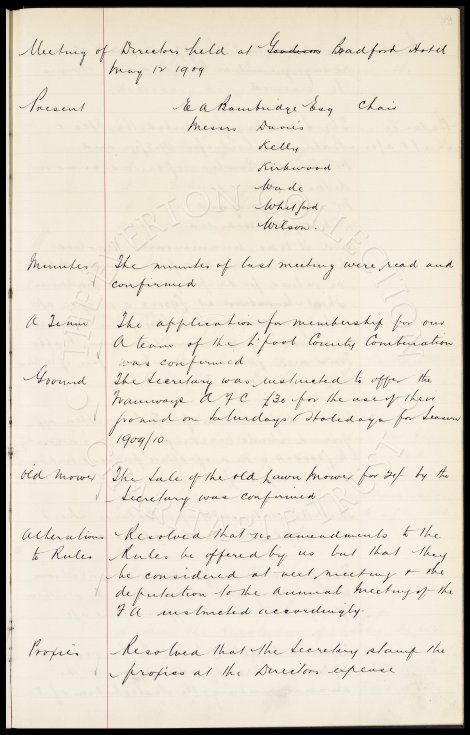 Meeting of Directors held at Goodison Bradford Hotel
May 12 1909
Present E A Bainbridge Esq Chair
Messrs Davies
Kelly
Kirkwood
Wade
Whitford
Wilson.
Minutes The minutes of last meeting were read and
confirmed
A Team The application for membership for our
A team of the L'pool County Combination
was confirmed
Ground The Secretary was instructed to offer the
Tramways A F C £30 for the use of their
ground on Saturdays & Holidays for Season
1909/10.
Old Mower The Sale of the old Lawn Mower for 20/- by the
Secretary was confirmed
Alterations Resolved that no amendments to the
to Rules Rules be offered by us but that they
be considered at next meeting & the
deputation to the Annual Meeting of the
F A instructed accordingly.
Proxies Resolved that the Secretary stamp the
proxies at the Directors expense
THE EVERTON COLLECTION
CHARITABLE TRUST